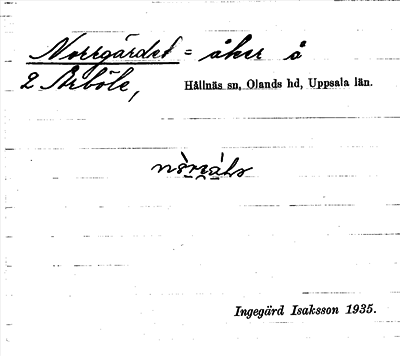 Norrgärdet = åker å
2 Årböle, Hållnäs sn, Olands hd, Uppsala län.
Ingegärd Isaksson 1935.